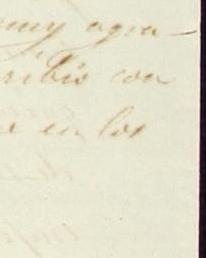 muy agra-
ribio con
e en los